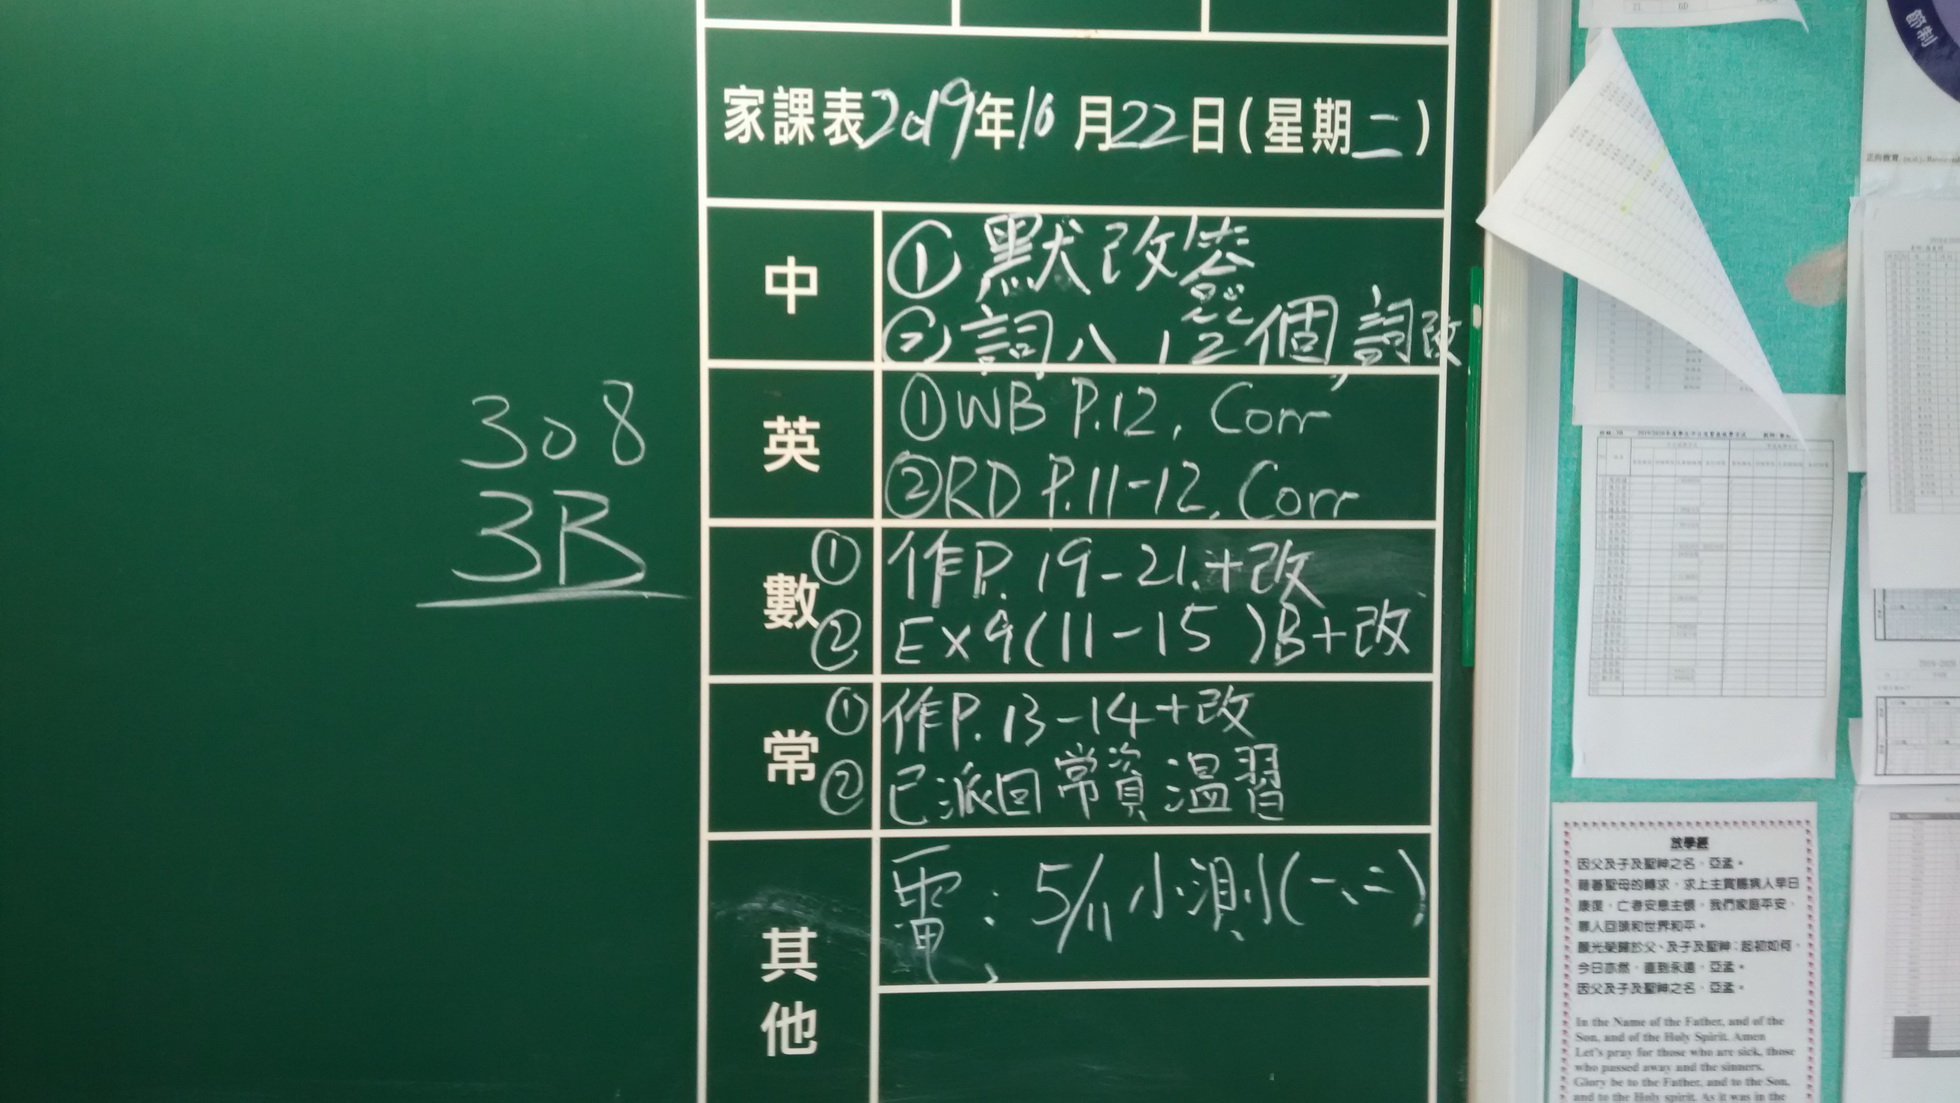 308
3B
家課表2019年10月22日(星期二)
中
①默改簽
②詞八12個,詞改
英
①WB P.12, Corr
②RD P.11-12, Corr
數
①作P.19-21.+改
②Ex9(11-15)B+改
常
①作P.13-14+改
②已派回常資溫習
其他
電:5/11小測(一、二)
節制
放學經
因父及子及聖神之名,亞孟。
藉著聖母的轉求,求上主賞賜病人早日
康復,亡者安息主懷,我們家庭平安,
罪人回頭和世界和平。
願光榮歸於父、及子及聖神;起初如何,
今日亦然,直到永遠,亞孟。
因父及子及聖神之名,亞孟。
In the Name of the Father, and of the
Son, and of the Holy Spirit. Amen
Let's pray for those who are sick, those
who passed away and the sinners.
Glory be to the Father, and to the Son,
and to the Holy spirit. As it was in the